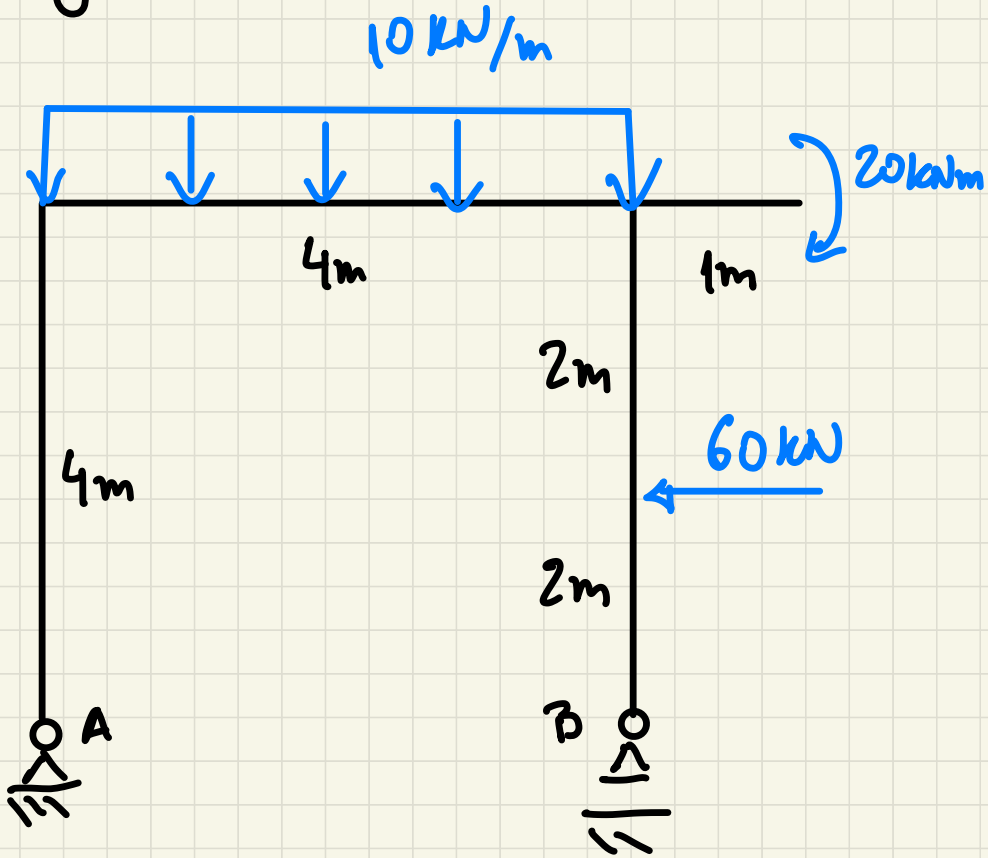 10 kN/m
20kNm
4m
1m
2m
60kN
4m
2m
A
B